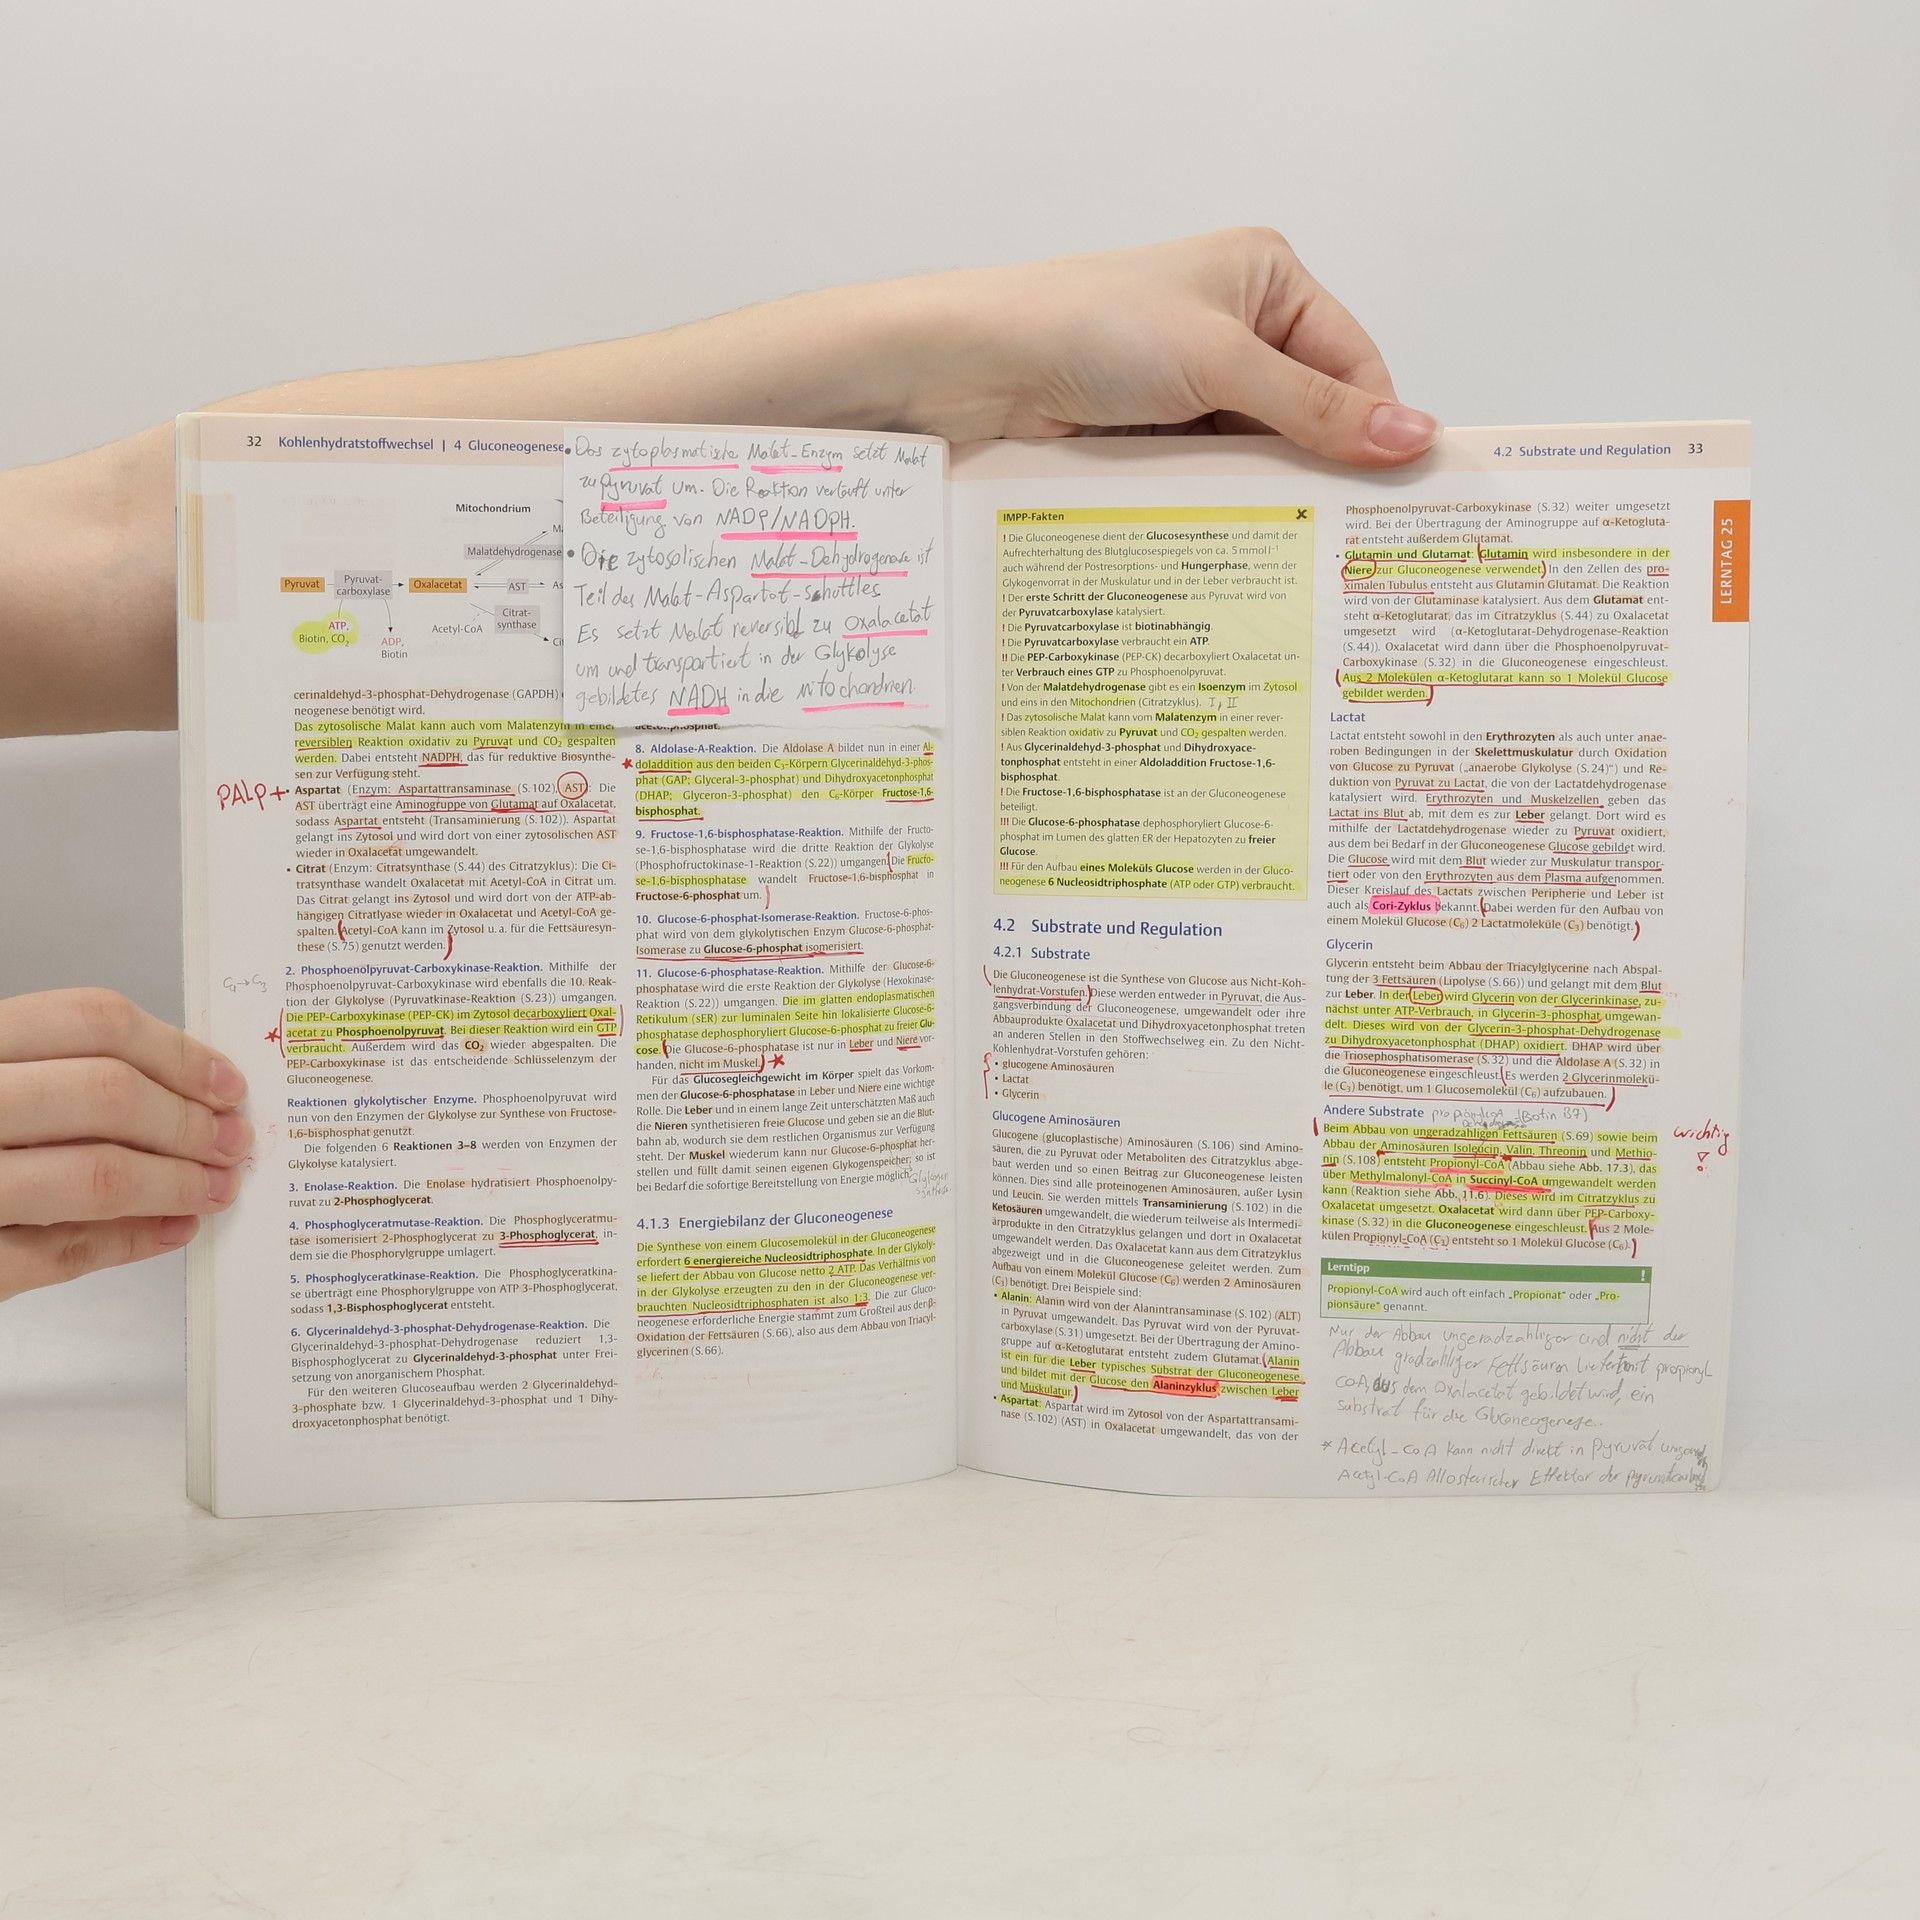 32 Kohlenhydratstoffwechsel | 4 Gluconeogenese
Mitochondrium
Malatdehydrogenase
Pyruvat
Pyruvat-
carboxylase
Oxalacetat
AST
ATP,
Biotin, CO₂
ADP,
Biotin
Acetyl-CoA
Citrat-
synthase
• Das zytoplasmatische Malat-Enzym setzt Malat
zu Pyruvat um. Die Reaktion verläuft unter
Beteiligung von NADP/NADPH.
• Die zytosolischen Malat-Dehydrogenase ist
Teil des Malat-Aspartat-Schuttles
Es setzt Malat reversibl zu Oxalacetat
um und transportiert in der Glykolyse
gebildetes NADH in die Mitochondrien.
cerinaldehyd-3-phosphat-Dehydrogenase (GAPDH)
neogenese benötigt wird.
Das zytosolische Malat kann auch vom Malatenzym in einer
reversiblen Reaktion oxidativ zu Pyruvat und CO₂ gespalten
werden. Dabei entsteht NADPH, das für reduktive Biosynthe-
sen zur Verfügung steht.
PALP+
• Aspartat (Enzym: Aspartattransaminase (S. 102), AST): Die
AST überträgt eine Aminogruppe von Glutamat auf Oxalacetat,
sodass Aspartat entsteht (Transaminierung (S. 102)). Aspartat
gelangt ins Zytosol und wird dort von einer zytosolischen AST
wieder in Oxalacetat umgewandelt.
• Citrat (Enzym: Citratsynthase (S. 44) des Citratzyklus): Die Ci-
tratsynthase wandelt Oxalacetat mit Acetyl-CoA in Citrat um.
Das Citrat gelangt ins Zytosol und wird dort von der ATP-ab-
hängigen Citratlyase wieder in Oxalacetat und Acetyl-CoA ge-
spalten. Acetyl-CoA kann im Zytosol u. a. für die Fettsäuresyn-
these (S. 75) genutzt werden.
C₄→C₃
2. Phosphoenolpyruvat-Carboxykinase-Reaktion. Mithilfe der
Phosphoenolpyruvat-Carboxykinase wird ebenfalls die 10. Reak-
tion der Glykolyse (Pyruvatkinase-Reaktion (S. 23)) umgangen.
Die PEP-Carboxykinase (PEP-CK) im Zytosol decarboxyliert Oxal-
acetat zu Phosphoenolpyruvat. Bei dieser Reaktion wird ein GTP
verbraucht. Außerdem wird das CO₂ wieder abgespalten. Die
PEP-Carboxykinase ist das entscheidende Schlüsselenzym der
Gluconeogenese.
Reaktionen glykolytischer Enzyme. Phosphoenolpyruvat wird
nun von den Enzymen der Glykolyse zur Synthese von Fructose-
1,6-bisphosphat genutzt.
Die folgenden 6 Reaktionen 3–8 werden von Enzymen der
Glykolyse katalysiert.
3. Enolase-Reaktion. Die Enolase hydratisiert Phosphoenolpy-
ruvat zu 2-Phosphoglycerat.
4. Phosphoglyceratmutase-Reaktion. Die Phosphoglyceratmu-
tase isomerisiert 2-Phosphoglycerat zu 3-Phosphoglycerat, in-
dem sie die Phosphorylgruppe umlagert.
5. Phosphoglyceratkinase-Reaktion. Die Phosphoglyceratkina-
se überträgt eine Phosphorylgruppe von ATP 3-Phosphoglycerat,
sodass 1,3-Bisphosphoglycerat entsteht.
6. Glycerinaldehyd-3-phosphat-Dehydrogenase-Reaktion. Die
Glycerinaldehyd-3-phosphat-Dehydrogenase reduziert 1,3-
Bisphosphoglycerat zu Glycerinaldehyd-3-phosphat unter Frei-
setzung von anorganischem Phosphat.
Für den weiteren Glucoseaufbau werden 2 Glycerinaldehyd-
3-phosphate bzw. 1 Glycerinaldehyd-3-phosphat und 1 Dihy-
droxyacetonphosphat benötigt.
acetonphosphat.
8. Aldolase-A-Reaktion. Die Aldolase A bildet nun in einer Al-
doladdition aus den beiden C₃-Körpern Glycerinaldehyd-3-phos-
phat (GAP; Glyceral-3-phosphat) und Dihydroxyacetonphosphat
(DHAP; Glyceron-3-phosphat) den C₆-Körper Fructose-1,6-
bisphosphat.
9. Fructose-1,6-bisphosphatase-Reaktion. Mithilfe der Fructo-
se-1,6-bisphosphatase wird die dritte Reaktion der Glykolyse
(Phosphofructokinase-1-Reaktion (S. 22)) umgangen. Die Fructo-
se-1,6-bisphosphatase wandelt Fructose-1,6-bisphosphat in
Fructose-6-phosphat um.
10. Glucose-6-phosphat-Isomerase-Reaktion. Fructose-6-phos-
phat wird von dem glykolytischen Enzym Glucose-6-phosphat-
Isomerase zu Glucose-6-phosphat isomerisiert.
11. Glucose-6-phosphatase-Reaktion. Mithilfe der Glucose-6-
phosphatase wird die erste Reaktion der Glykolyse (Hexokinase-
Reaktion (S. 22)) umgangen. Die im glatten endoplasmatischen
Retikulum (sER) zur luminalen Seite hin lokalisierte Glucose-6-
phosphatase dephosphoryliert Glucose-6-phosphat zu freier Glu-
cose. Die Glucose-6-phosphatase ist nur in Leber und Niere vor-
handen, nicht im Muskel.
Für das Glucosegleichgewicht im Körper spielt das Vorkom-
men der Glucose-6-phosphatase in Leber und Niere eine wichtige
Rolle. Die Leber und in einem lange Zeit unterschätzten Maß auch
die Nieren synthetisieren freie Glucose und geben sie an die Blut-
bahn ab, wodurch sie dem restlichen Organismus zur Verfügung
steht. Der Muskel wiederum kann nur Glucose-6-phosphat her-
stellen und füllt damit seinen eigenen Glykogenspeicher; so ist
bei Bedarf die sofortige Bereitstellung von Energie möglich.
Glykogen
synthese
4.1.3 Energiebilanz der Gluconeogenese
Die Synthese von einem Glucosemolekül in der Gluconeogenese
erfordert 6 energiereiche Nucleosidtriphosphate. In der Glykoly-
se liefert der Abbau von Glucose netto 2 ATP. Das Verhältnis von
in der Glykolyse erzeugten zu den in der Gluconeogenese ver-
brauchten Nucleosidtriphosphaten ist also 1:3. Die zur Gluco-
neogenese erforderliche Energie stammt zum Großteil aus der β-
Oxidation der Fettsäuren (S. 66), also aus dem Abbau von Triacyl-
glycerinen (S. 66).
4.2 Substrate und Regulation 33
LERNTAG 25
IMPP-Fakten
! Die Gluconeogenese dient der Glucosesynthese und damit der
Aufrechterhaltung des Blutglucosespiegels von ca. 5 mmol l⁻¹
auch während der Postresorptions- und Hungerphase, wenn der
Glykogenvorrat in der Muskulatur und in der Leber verbraucht ist.
! Der erste Schritt der Gluconeogenese aus Pyruvat wird von
der Pyruvatcarboxylase katalysiert.
! Die Pyruvatcarboxylase ist biotinabhängig.
! Die Pyruvatcarboxylase verbraucht ein ATP.
!! Die PEP-Carboxykinase (PEP-CK) decarboxyliert Oxalacetat un-
ter Verbrauch eines GTP zu Phosphoenolpyruvat.
! Von der Malatdehydrogenase gibt es ein Isoenzym im Zytosol
und eins in den Mitochondrien (Citratzyklus). I, II
! Das zytosolische Malat kann vom Malatenzym in einer rever-
siblen Reaktion oxidativ zu Pyruvat und CO₂ gespalten werden.
! Aus Glycerinaldehyd-3-phosphat und Dihydroxyace-
tonphosphat entsteht in einer Aldoladdition Fructose-1,6-
bisphosphat.
! Die Fructose-1,6-bisphosphatase ist an der Gluconeogenese
beteiligt.
!!! Die Glucose-6-phosphatase dephosphoryliert Glucose-6-
phosphat im Lumen des glatten ER der Hepatozyten zu freier
Glucose.
!!! Für den Aufbau eines Moleküls Glucose werden in der Gluco-
neogenese 6 Nucleosidtriphosphate (ATP oder GTP) verbraucht.
4.2 Substrate und Regulation
4.2.1 Substrate
Die Gluconeogenese ist die Synthese von Glucose aus Nicht-Koh-
lenhydrat-Vorstufen. Diese werden entweder in Pyruvat, die Aus-
gangsverbindung der Gluconeogenese, umgewandelt oder ihre
Abbauprodukte Oxalacetat und Dihydroxyacetonphosphat treten
an anderen Stellen in den Stoffwechselweg ein. Zu den Nicht-
Kohlenhydrat-Vorstufen gehören:
• glucogene Aminosäuren
• Lactat
• Glycerin
Glucogene Aminosäuren
Glucogene (glucoplastische) Aminosäuren (S. 106) sind Amino-
säuren, die zu Pyruvat oder Metaboliten des Citratzyklus abge-
baut werden und so einen Beitrag zur Gluconeogenese leisten
können. Dies sind alle proteinogenen Aminosäuren, außer Lysin
und Leucin. Sie werden mittels Transaminierung (S. 102) in die
Ketosäuren umgewandelt, die wiederum teilweise als Intermedi-
ärprodukte in den Citratzyklus gelangen und dort in Oxalacetat
umgewandelt werden. Das Oxalacetat kann aus dem Citratzyklus
abgezweigt und in die Gluconeogenese geleitet werden. Zum
Aufbau von einem Molekül Glucose (C₆) werden 2 Aminosäuren
(C₃) benötigt. Drei Beispiele sind:
• Alanin: Alanin wird von der Alanintransaminase (S. 102) (ALT)
in Pyruvat umgewandelt. Das Pyruvat wird von der Pyruvat-
carboxylase (S. 31) umgesetzt. Bei der Übertragung der Amino-
gruppe auf α-Ketoglutarat entsteht zudem Glutamat. Alanin
ist ein für die Leber typisches Substrat der Gluconeogenese
und bildet mit der Glucose den Alaninzyklus zwischen Leber
und Muskulatur.
• Aspartat: Aspartat wird im Zytosol von der Aspartattransami-
nase (S. 102) (AST) in Oxalacetat umgewandelt, das von der
Phosphoenolpyruvat-Carboxykinase (S. 32) weiter umgesetzt
wird. Bei der Übertragung der Aminogruppe auf α-Ketogluta-
rat entsteht außerdem Glutamat.
• Glutamin und Glutamat: Glutamin wird insbesondere in der
Niere zur Gluconeogenese verwendet. In den Zellen des pro-
ximalen Tubulus entsteht aus Glutamin Glutamat. Die Reaktion
wird von der Glutaminase katalysiert. Aus dem Glutamat ent-
steht α-Ketoglutarat, das im Citratzyklus (S. 44) zu Oxalacetat
umgesetzt wird (α-Ketoglutarat-Dehydrogenase-Reaktion
(S. 44)). Oxalacetat wird dann über die Phosphoenolpyruvat-
Carboxykinase (S. 32) in die Gluconeogenese eingeschleust.
Aus 2 Molekülen α-Ketoglutarat kann so 1 Molekül Glucose
gebildet werden.
Lactat
Lactat entsteht sowohl in den Erythrozyten als auch unter anae-
roben Bedingungen in der Skelettmuskulatur durch Oxidation
von Glucose zu Pyruvat („anaerobe Glykolyse (S. 24)“) und Re-
duktion von Pyruvat zu Lactat, die von der Lactatdehydrogenase
katalysiert wird. Erythrozyten und Muskelzellen geben das
Lactat ins Blut ab, mit dem es zur Leber gelangt. Dort wird es
mithilfe der Lactatdehydrogenase wieder zu Pyruvat oxidiert,
aus dem bei Bedarf in der Gluconeogenese Glucose gebildet wird.
Die Glucose wird mit dem Blut wieder zur Muskulatur transpor-
tiert oder von den Erythrozyten aus dem Plasma aufgenommen.
Dieser Kreislauf des Lactats zwischen Peripherie und Leber ist
auch als Cori-Zyklus bekannt. Dabei werden für den Aufbau von
einem Molekül Glucose (C₆) 2 Lactatmoleküle (C₃) benötigt.
Glycerin
Glycerin entsteht beim Abbau der Triacylglycerine nach Abspal-
tung der 3 Fettsäuren (Lipolyse (S. 66)) und gelangt mit dem Blut
zur Leber. In der Leber wird Glycerin von der Glycerinkinase, zu-
nächst unter ATP-Verbrauch, in Glycerin-3-phosphat umgewan-
delt. Dieses wird von der Glycerin-3-phosphat-Dehydrogenase
zu Dihydroxyacetonphosphat (DHAP) oxidiert. DHAP wird über
die Triosephosphatisomerase (S. 32) und die Aldolase A (S. 32) in
die Gluconeogenese eingeschleust. Es werden 2 Glycerinmolekü-
le (C₃) benötigt, um 1 Glucosemolekül (C₆) aufzubauen.
Andere Substrate
wichtig
!
Beim Abbau von ungeradzahligen Fettsäuren (S. 69) sowie beim
Abbau der Aminosäuren Isoleucin, Valin, Threonin und Methio-
nin (S. 108) entsteht Propionyl-CoA (Abbau siehe Abb. 17.3), das
über Methylmalonyl-CoA in Succinyl-CoA umgewandelt werden
kann (Reaktion siehe Abb. 11.6). Dieses wird im Citratzyklus zu
Oxalacetat umgesetzt. Oxalacetat wird dann über PEP-Carboxy-
kinase (S. 32) in die Gluconeogenese eingeschleust. Aus 2 Mole-
külen Propionyl-CoA (C₃) entsteht so 1 Molekül Glucose (C₆).
Lerntipp !
Propionyl-CoA wird auch oft einfach „Propionat“ oder „Pro-
pionsäure“ genannt.
Nur der Abbau ungeradzahliger und nicht der
Abbau gradzahliger Fettsäuren liefert mit propionyl
CoA, aus dem Oxalacetat gebildet wird, ein
substrat für die Gluconeogenese.
* Acetyl-CoA kann nicht direkt in Pyruvat
Acetyl-CoA Allosterischer Effektor der